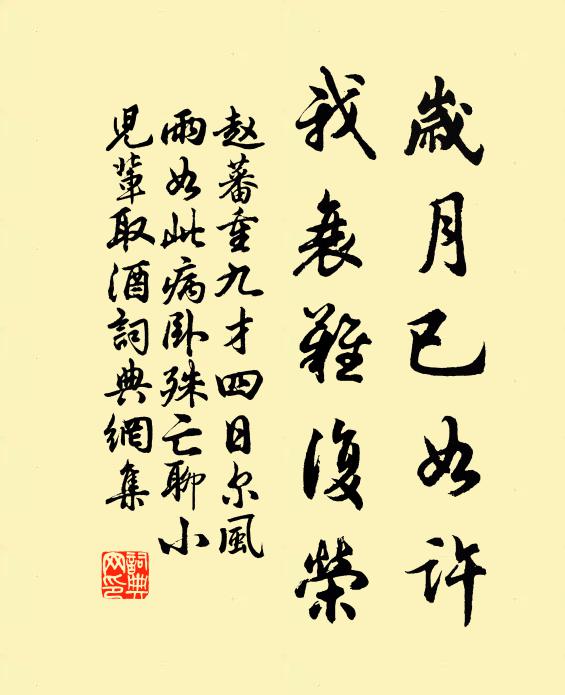 歲月已如許
我衰難復榮
赵蕃重九才四日尔風
雨如此病卧殊亡聊小
児輩取酒詞典網集
詞典网印